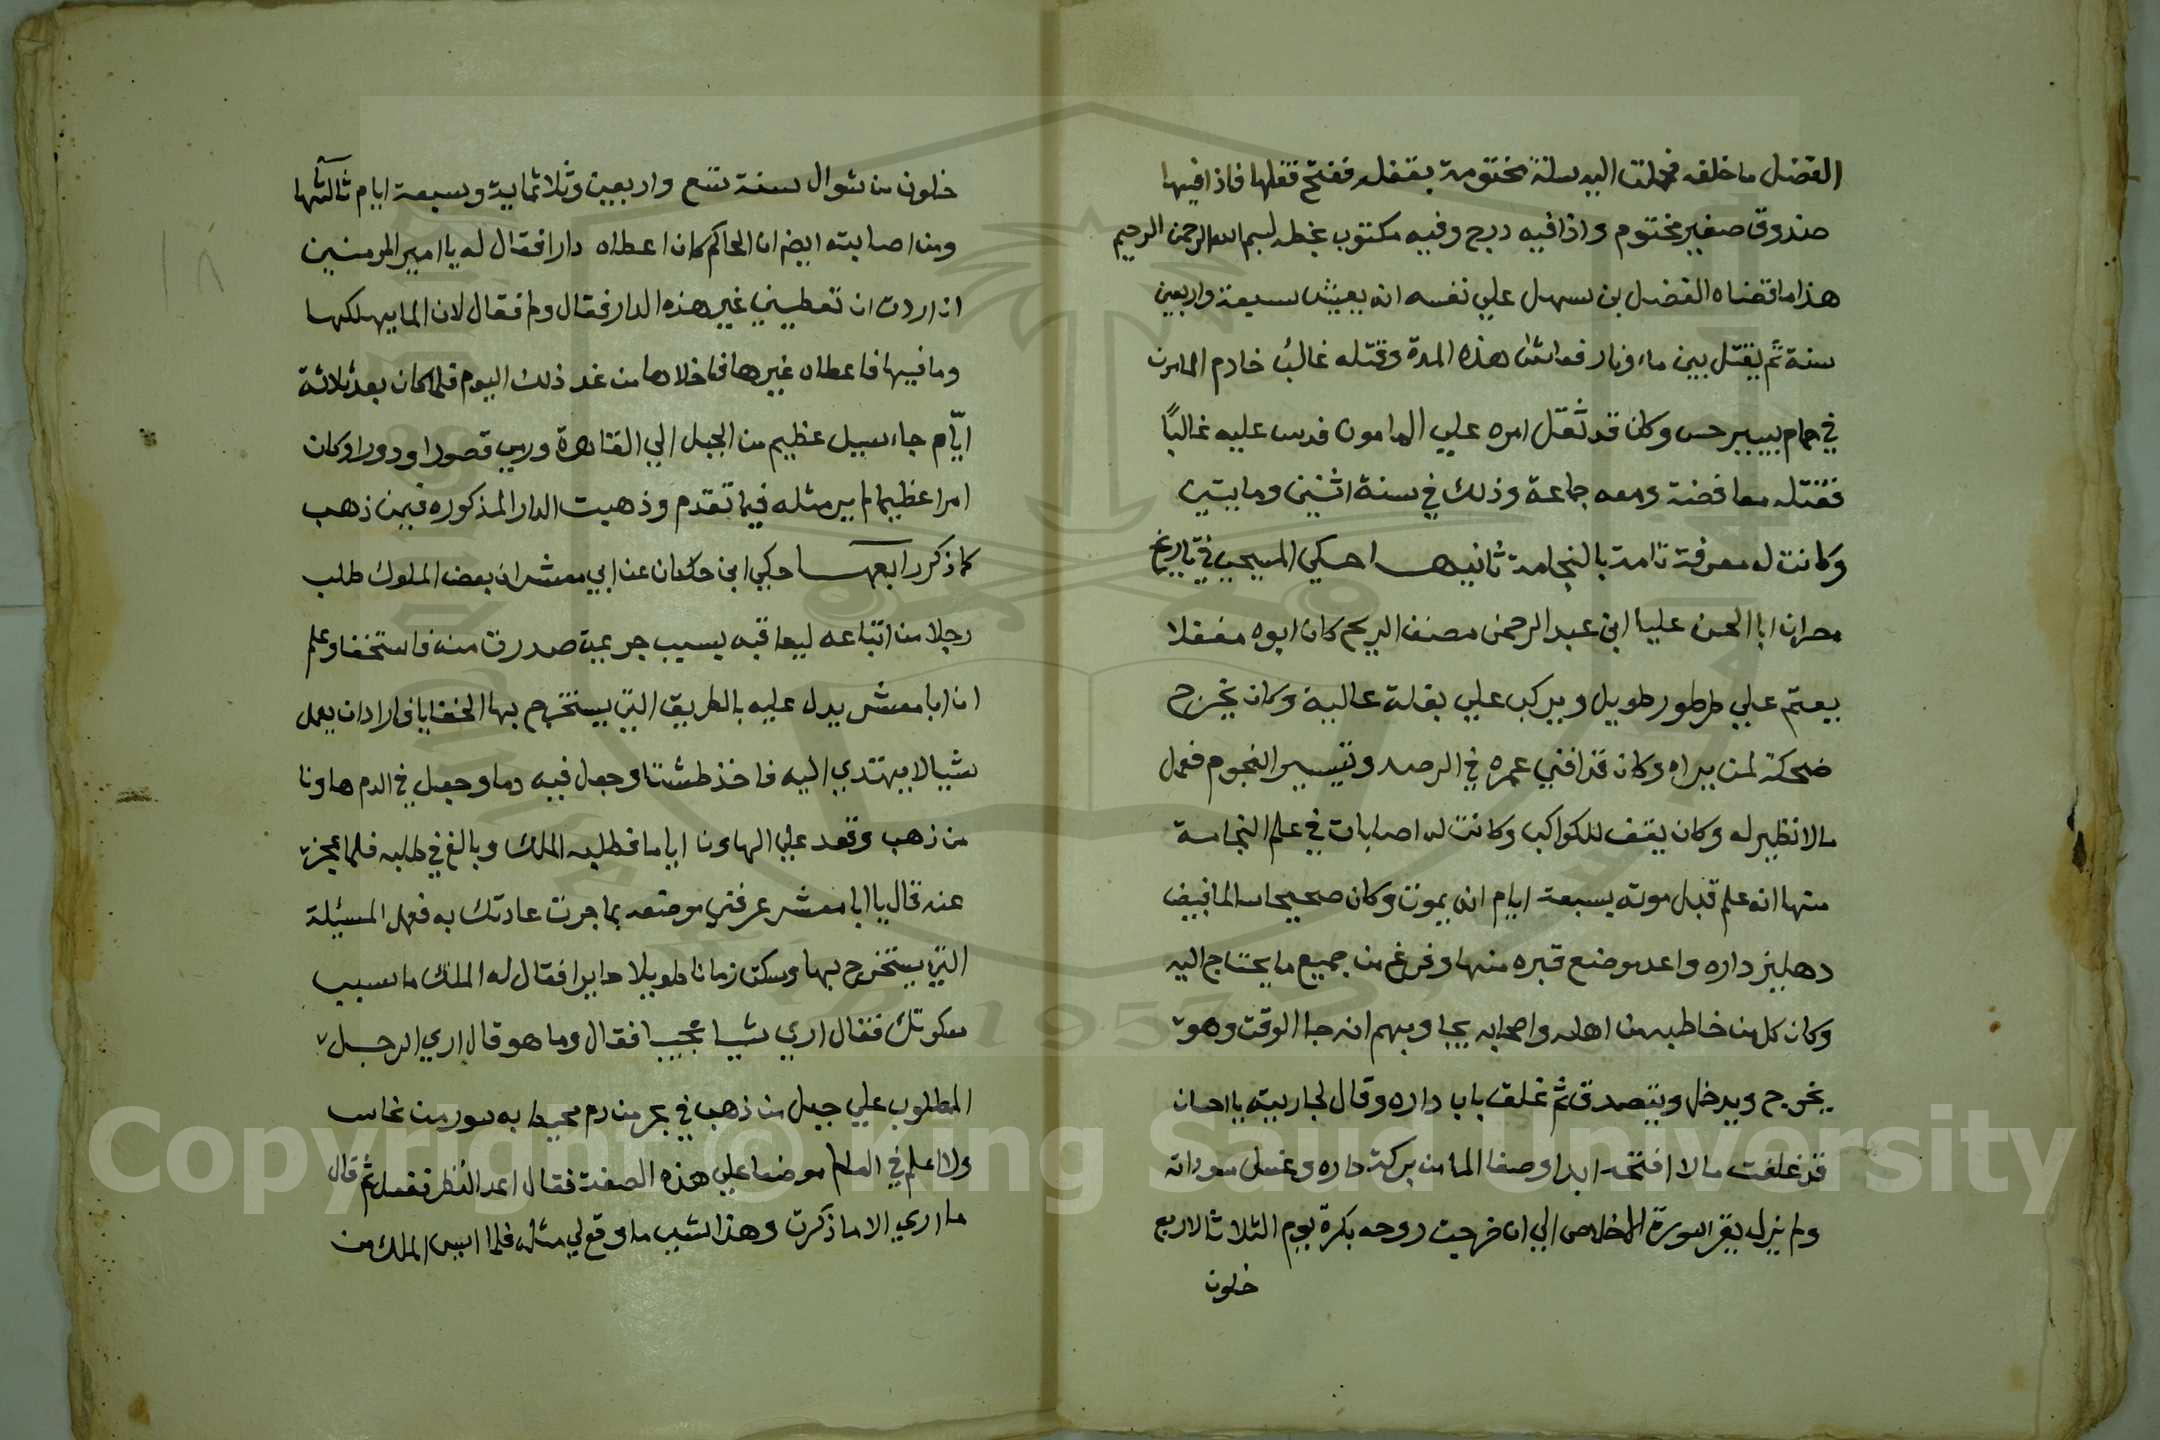 الفضل ما خلفه فحملت اليه سلة مختومة بقفله ففتح قفلها فاذا فيها
صندوق صغير مختوم واذا فيه درج وفيه مكتوب بخطه بسم الله الرحمن الرحيم
هذا ما قضاه الفضل بن سهل علي نفسه انه يعيش سبعة واربعين
سنة ثم يقتل بين ماء ونار فعاش هذه المدة وقتله غالب خادم المامون
في حمام بيبرحس وكان قد ثقل امره علي المامون فدس عليه غالبًا
فقتله مغافصة ومعه جماعة وذلك في سنة اثنين ومايتين
وكانت له معرفة تامة بالنجامة ثانيها احكي المسبحي في تاريخ
مصر ان ابا الحسن عليا ابن عبد الرحمن مصنف الزيج كان ابوه مغفلا
يعتم علي طرطور طويل ويركب علي بغلة عالية وكان يخرج
ضحكة لمن يراه وكان قد افني عمره في الرصد وتسيير النجوم فعمل
ما لا نظير له وكان يقف للكواكب وكانت له اصابات في علم النجامة
منها انه علم قبل موته بسبعة ايام انه يموت وكان صحيحا سالما فبيض
دهليز داره واعد موضع قبره منها وفرغ من جميع ما يحتاج اليه
وكان كل من خاطبه من اهله واصحابه يجاوبهم انه جا الوقت وهو
يخرج ويدخل ويتصدق ثم غلق باب داره وقال لجاريته يا احسان
قد غلقت ما لا افتحه ابدا وصفا الما من بركة داره وغسل سوداته
ولم يزل يقرا سورة الاخلاص الي ان خرجت روحه بكرة يوم الثلاثا لاربع
خلون
خلون من شوال سنة تسع واربعين وثلاثماية وسبعة ايام ثالثها
ومن اصابته ايضا ان الحاكم كان اعطاه دارا فقال له يا امير المومنين
ان اردت ان تعطيني غير هذه الدار فقال ولم فقال لان الما يهلكها
وما فيها فاعطاه غيرها فاخلاها من غد ذلك اليوم فلما كان بعد ثلاثة
ايّام جاء سيل عظيم من الجبل الي القاهرة ورمي قصورا ودورا وكان
امرا عظيما لم ير مثله فيما تقدم وذهبت الدار المذكوره فيمن ذهب
كما ذكر رابعها حكي ابن خلكان عن ابي معشر ان بعض الملوك طلب
رجلا من اتباعه ليعاقبه بسبب جريمة صدرت منه فاستخفا وعلم
ان ابا معشر يدل عليه بالطريق التي يستخرج بها الخفايا فاراد ان يعمل
شيا لا يهتدي اليه فاخذ طشتا وجعل فيه دما وجعل في الدم هاونا
من ذهب وقعد علي الهاون اياما فطلبه الملك وبالغ في طلبه فلما عجز
عنه قال يا ابا معشر عرفني موضعه بما جرت عادتك به فعمل المسئلة
التي يستخرج بها وسكت زمانا طويلا حايرا فقال له الملك ما سبب
سكوتك فقال اري شيا عجيبا فقال وما هو قال اري الرجل
المطلوب علي جبل من ذهب في بحر من دم محيط به سور من نحاس
ولا اعلم في العالم موضعا علي هذه الصفة فقال اعد النظر ففعل ثم قال
ما اري الا ما ذكرت وهذا شي ما وقع لي مثله فلما ايس الملك من